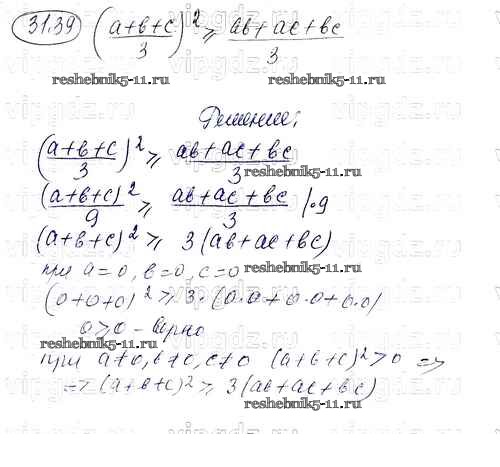 31.39 ((a+b+c)/3)² ⩾ (ab+ac+bc)/3
reshebnik5-11.ru reshebnik5-11.ru
Решение:
((a+b+c)/3)² ⩾ (ab+ac+bc)/3
reshebnik5-11.ru
(a+b+c)²/9 ⩾ (ab+ac+bc)/3 |·9
reshebnik5-11.ru
(a+b+c)² ⩾ 3(ab+ac+bc)
при a=0, b=0, c=0
reshebnik5-11.ru
(0+0+0)² ⩾ 3·(0·0+0·0+0·0)
0⩾0 - верно
reshebnik5-11.ru
при a≠0, b≠0, c≠0 (a+b+c)²>0 =>
=> (a+b+c)² ⩾ 3(ab+ac+bc)
reshebnik5-11.ru